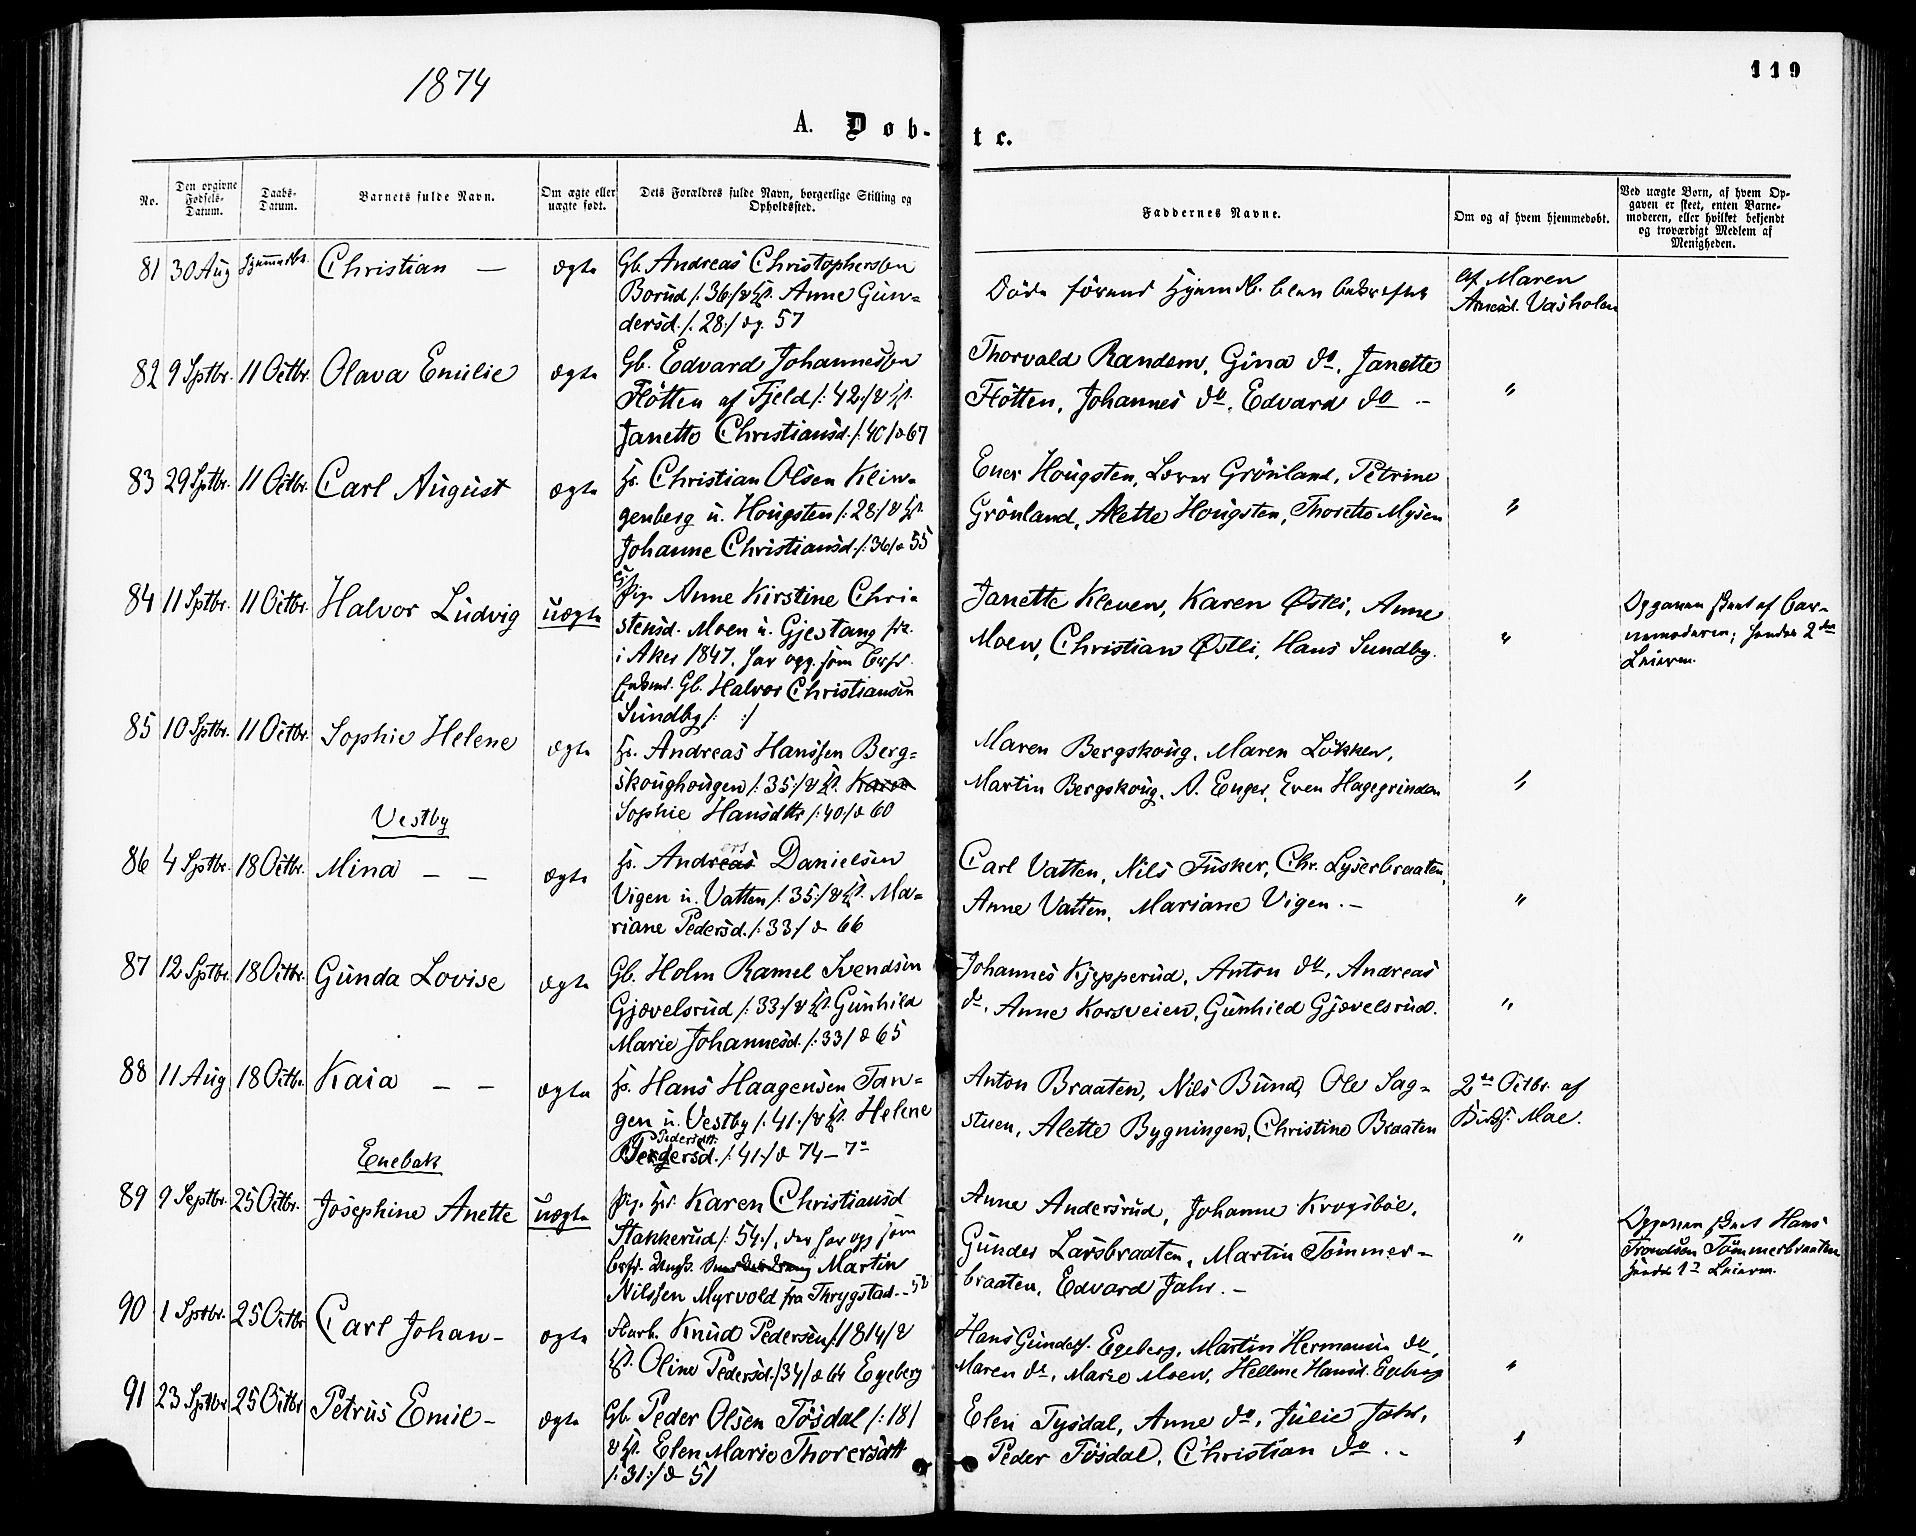 1874
119
A. Døb-
te.
No.
Den opgivne
Fødsels-
Datum.
Daabs-
Datum.
Barnets fulde Navn.
Om ægte eller
uægte født.
Dets Forældres fulde Navn, borgerlige Stilling og
Opholdssted.
Faddernes Navne.
Om og af hvem hjemmedøbt.
Ved uægte Børn, af hvem Op-
gaven er skeet, enten Barne-
moderen, eller hvilket bekjendt
og troværdigt Medlem af
Menigheden.
81 30 Aug Christian — ægte
Gb. Andreas Christophersen
Borud /:36:/ & H. Anne Gun-
dersd. /:28:/ og 57
Døde førend Hjemdb. blev bekræftet
af Maren
Arnesd. Vasholen
82 9 Sptbr. 11 Octbr. Olava Emilie ægte
Gb. Edvard Johannesen
Fløtten af Fjeld /:42:/ & H.
Janette Christiansd. /:40/ & 67
Thorvald Randem, Gina do, Janette
Fløtten, Johannes do, Edvard do -
"
83 29 Sptbr. 11 Octbr. Carl August ægte
Hs. Christian Olsen Klin-
genberg u. Hougsten /:28:/ & H.
Johanne Christiansd. /:36/ & 55
Ener Hougsten, Grönland, Petrine
Grönland, Alette Hougsten, Thorette Mysen
"
84 11 Sptbr. 11 Octbr. Halvor Ludvig uægte
Pig. Anne Kirstine Chri-
stensd. Moen u. Gjestang fr.
i Aker 1847. har opg. som Brfr.
Gb. Halvor Christiansen
Sundby /: :/
Janette Kleven, Karen Østli, Anne
Moen, Christian Østli, Hans Sundby.
"
Opgaven skeet af Bar-
nemoderen; hendes 2den
Leierm.
85 10 Sptbr. 11 Octbr. Sophie Helene ægte
Hs. Andreas Hanssen Berg-
skoughougen /:35:/ & H. Karen
Sophie Hansdttr /:40/ & 60
Maren Bergskoug, Maren Løkken,
Martin Bergskoug, A. Enger, Even Hagegrinden
"
Vestby
86 4 Sptbr. 18 Octbr. Mina — — ægte
Hs. Andreas ers Danielsen
Vigen u. Vatten /:35:/ & H. Ma-
riane Pedersd. /:33:/ & 66
Carl Vatten, Nils Tusker, Chr. Lyserbraaten,
Anne Vatten, Mariane Vigen. -
"
87 12 Sptbr. 18 Octbr. Gunda Lovise ægte
Gb. Holm Ramel Svendsen
Gjævelsrud /:33:/ & H. Gunhild
Marie Johannesd. /:33/ & 65
Johannes Kjepperud, Anton do, Andreas
do, Anne Korsveien, Gunhild Gjævelsrud.
"
88 11 Aug 18 Octbr. Kaia — — ægte
Hs. Hans Haagensen Tan-
gen u. Vestby /:41:/ & H. Helene
Pedersdtt. /:41:/ & 74 - 7de
Anton Braaten, Nils Bund, Ole Sag-
stuen, Alette Bygningen, Christine Braaten
2de Octbr. af
Moe.
Enebak
89 9 Septbr. 25 Octbr. Josephine Anette uægte
Pig. Hs. Karen Christiansd
Stakkerud /:54:/, der har opg. som
brfr. Ungk. Martin
Nilssen Myrvold fra Thrygstad.
Anne Andersrud, Johanne Krogsbøl,
Gunder Larsbraaten, Martin Tömmer-
braaten, Edvard Jahr. -
"
Opgaven skeet Hans
Trondsen Tømmerbraaten
hendes 1ste Leierm.
90 1 Sptbr. 25 Octbr Carl Johan - ægte
Knud Pedersen /:1814/ &
H. Oline Pedersd. /34/ & 64 Egeberg
Hans Gunders. Egeberg, Martin Hermansen do,
Maren do, Marie Moen, Hellene Hansd. Egeberg
"
91 23 Sptbr 25 Octbr Petrus Emil - ægte
Gb. Peder Olsen Tösdal /:18/
& H. Elen Marie Thorersdtt
/:31:/ & 51
Elen Tysdal, Anne do, Julie Jahr,
Peder Tösdal, Christian do. -
"